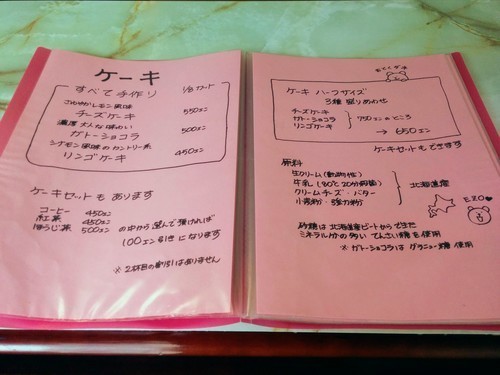 ケーキ
すべて手作り 1/8カット
さわやかレモン風味
チーズケーキ 550エン
濃厚 大人な味わい
ガトーショコラ 500エン
シナモン風味のカントリー系
リンゴケーキ 450エン
ケーキセットもあります
コーヒー 450エン
紅茶 450エン
ほうじ茶 500エン
の中から選んで頂ければ
100エン引きになります
※2杯目の割引はありません
おとくダヨ
ケーキ ハーフサイズ
3種盛りあわせ
チーズケーキ
ガトーショコラ
リンゴケーキ
750エンのところ
→ 650エン
ケーキセットもできます
原料
生クリーム(動物性)
牛乳(80℃20分間殺菌)
クリームチーズ・バター
小麦粉・強力粉
北海道産
砂糖は北海道産ビートからできた
ミネラル分の多いてんさい糖を使用
※ガトーショコラはグラニュー糖使用